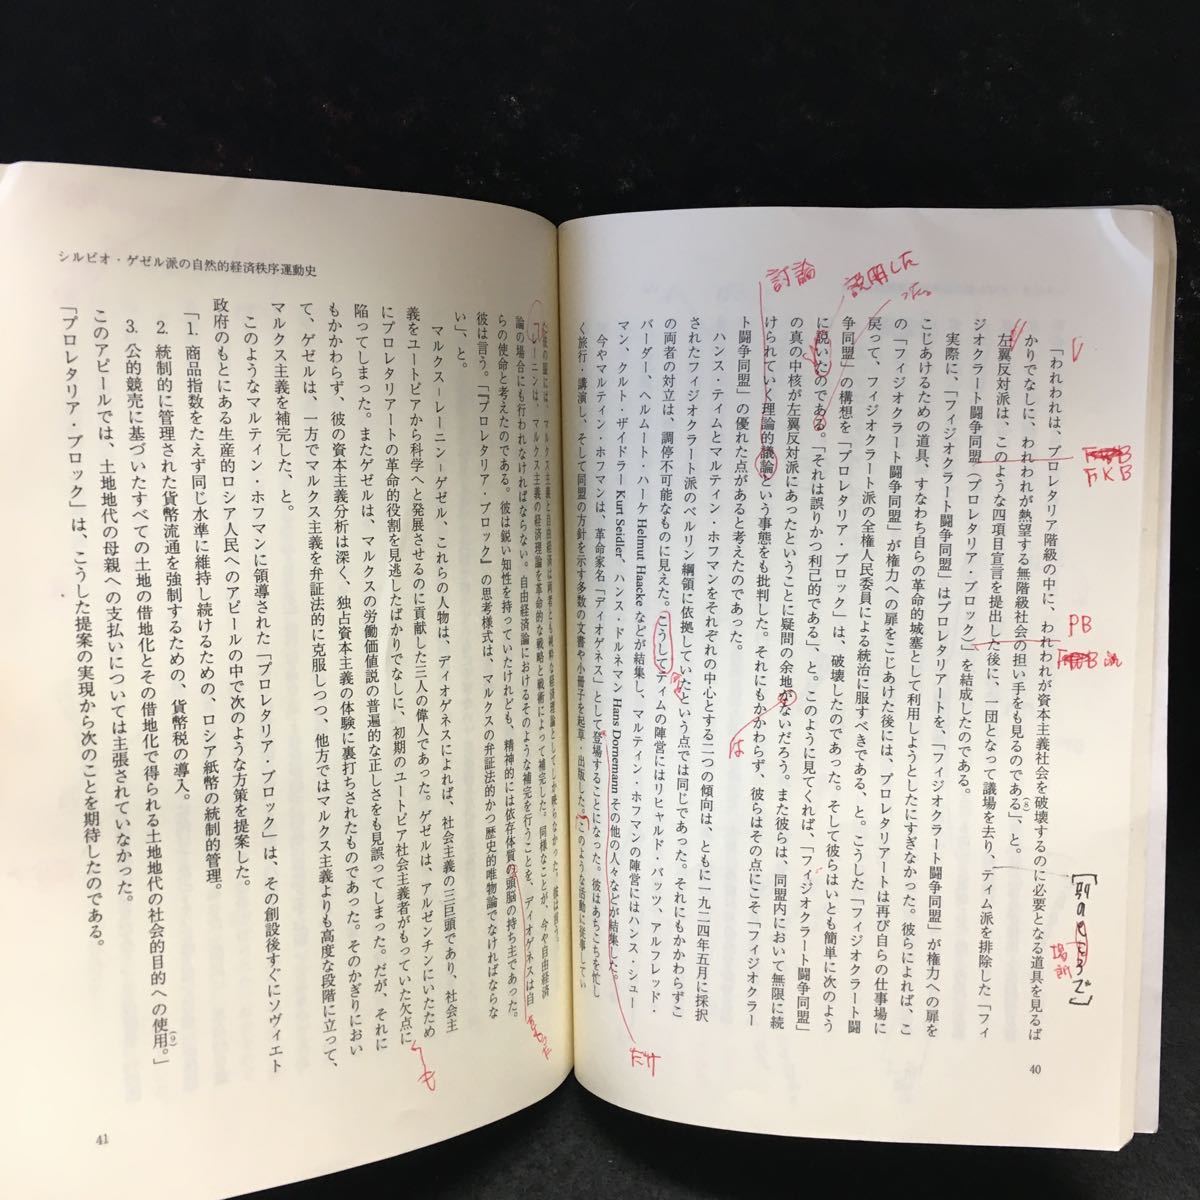 「われわれは、プロレタリア階級の中に、われわれが資本主義社会を破壊するのに必要となる道具を見るば
かりでなしに、われわれが熱望する無階級社会の担い手をも見るのである」(8)、と。
左翼反対派は、このような四項目宣言を提出した後に、一団となって議場を去り、ティム派を排除した「フィ
ジオクラート闘争同盟（プロレタリア・ブロック）」を結成したのである。
実際に、「フィジオクラート闘争同盟」はプロレタリアートを、「フィジオクラート闘争同盟」が権力への扉を
こじあけるための道具、すなわち自らの革命的城塞として利用しようとしたにすぎなかった。彼らによれば、こ
の「フィジオクラート闘争同盟」が権力への扉をこじあけた後には、プロレタリアートは再び自らの仕事場に
戻って、フィジオクラート派の全権人民委員による統治に服すべきである、と。こうした「フィジオクラート闘
争同盟」の構想を「プロレタリア・ブロック」は、破壊したのであった。そして彼らはいとも簡単に次のよう
に説いたのである。「それは誤りかつ利己的である」、と。このように見てくれば、「フィジオクラート闘争同盟」
の真の中核が左翼反対派にあったということに疑問の余地がないだろう。また彼らは、同盟内において無限に続
けられていく理論的議論という事態をも批判した。それにもかかわらず、彼らはその点にこそ「フィジオクラー
ト闘争同盟」の優れた点があると考えたのであった。
ハンス・ティムとマルティン・ホフマンをそれぞれの中心とする二つの傾向は、ともに一九二四年五月に採択
されたフィジオクラート派のベルリン綱領に依拠していたという点では同じであった。それにもかかわらずこ
の両者の対立は、調停不可能なものに見えた。こうしてティムの陣営にはリヒャルド・バッツ、アルフレッド・
バーダー、ヘルムート・ハーケ Helmut Haacke などが結集し、マルティン・ホフマンの陣営にはハンス・シュー
マン、クルト・ザイドラー Kurt Seidler、ハンス・ドルネマン Hans Dornemann その他の人々などが結集した。
今やマルティン・ホフマンは、革命家名「ディオゲネス」として登場することになった。彼はあちこちを忙し
く旅行・講演し、そして同盟の方針を示す多数の文書や小冊子を起草・出版した。このような活動に従事してい
40
討論
説明した
FKB
PB
場所
は
だけ
シルビオ・ゲゼル派の自然的経済秩序運動史
た彼の眼には、マルクス主義と自由経済は両者とも純粋な経済理論としてしか映らなかった。彼は言う。
「レーニンは、マルクス主義の経済理論を革命的な戦略と戦術によって補完した。同様なことが、今や自由経済
論の場合にも行われなければならない。自由経済論におけるそのような補完を行うことを、ディオゲネスは自
らの使命と考えたのである。彼は鋭い知性を持っていたけれども、精神的には依存体質の頭脳の持ち主であった。
彼は言う。「『プロレタリア・ブロック』の思考様式は、マルクスの弁証法的かつ歴史的唯物論でなければならな
い」、と。
マルクス－レーニン－ゲゼル、これらの人物は、ディオゲネスによれば、社会主義の三巨頭であり、社会主
義をユートピアから科学へと発展させるのに貢献した三人の偉人であった。ゲゼルは、アルゼンチンにいたため
にプロレタリアートの革命的役割を見逃したばかりでなしに、初期のユートピア社会主義者がもっていた欠点に
陥ってしまった。またゲゼルは、マルクスの労働価値説の普遍的な正しさをも見誤ってしまった。だが、それに
もかかわらず、彼の資本主義分析は深く、独占資本主義の体験に裏打ちされたものであった。そのかぎりにおい
て、ゲゼルは、一方でマルクス主義を弁証法的に克服しつつ、他方ではマルクス主義よりも高度な段階に立って、
マルクス主義を補完した、と。
このようなマルティン・ホフマンに領導された「プロレタリア・ブロック」は、その創設後すぐにソヴィエト
政府のもとにある生産的ロシア人民へのアピールの中で次のような方策を提案した。
「1. 商品指数をたえず同じ水準に維持し続けるための、ロシア紙幣の統制的管理。
2. 統制的に管理された貨幣流通を強制するための、貨幣税の導入。
3. 公的競売に基づいたすべての土地の借地化とその借地化で得られる土地地代の社会的目的への使用。」(9)
このアピールでは、土地地代の母親への支払いについては主張されていなかった。
「プロレタリア・ブロック」は、こうした提案の実現から次のことを期待したのである。
41